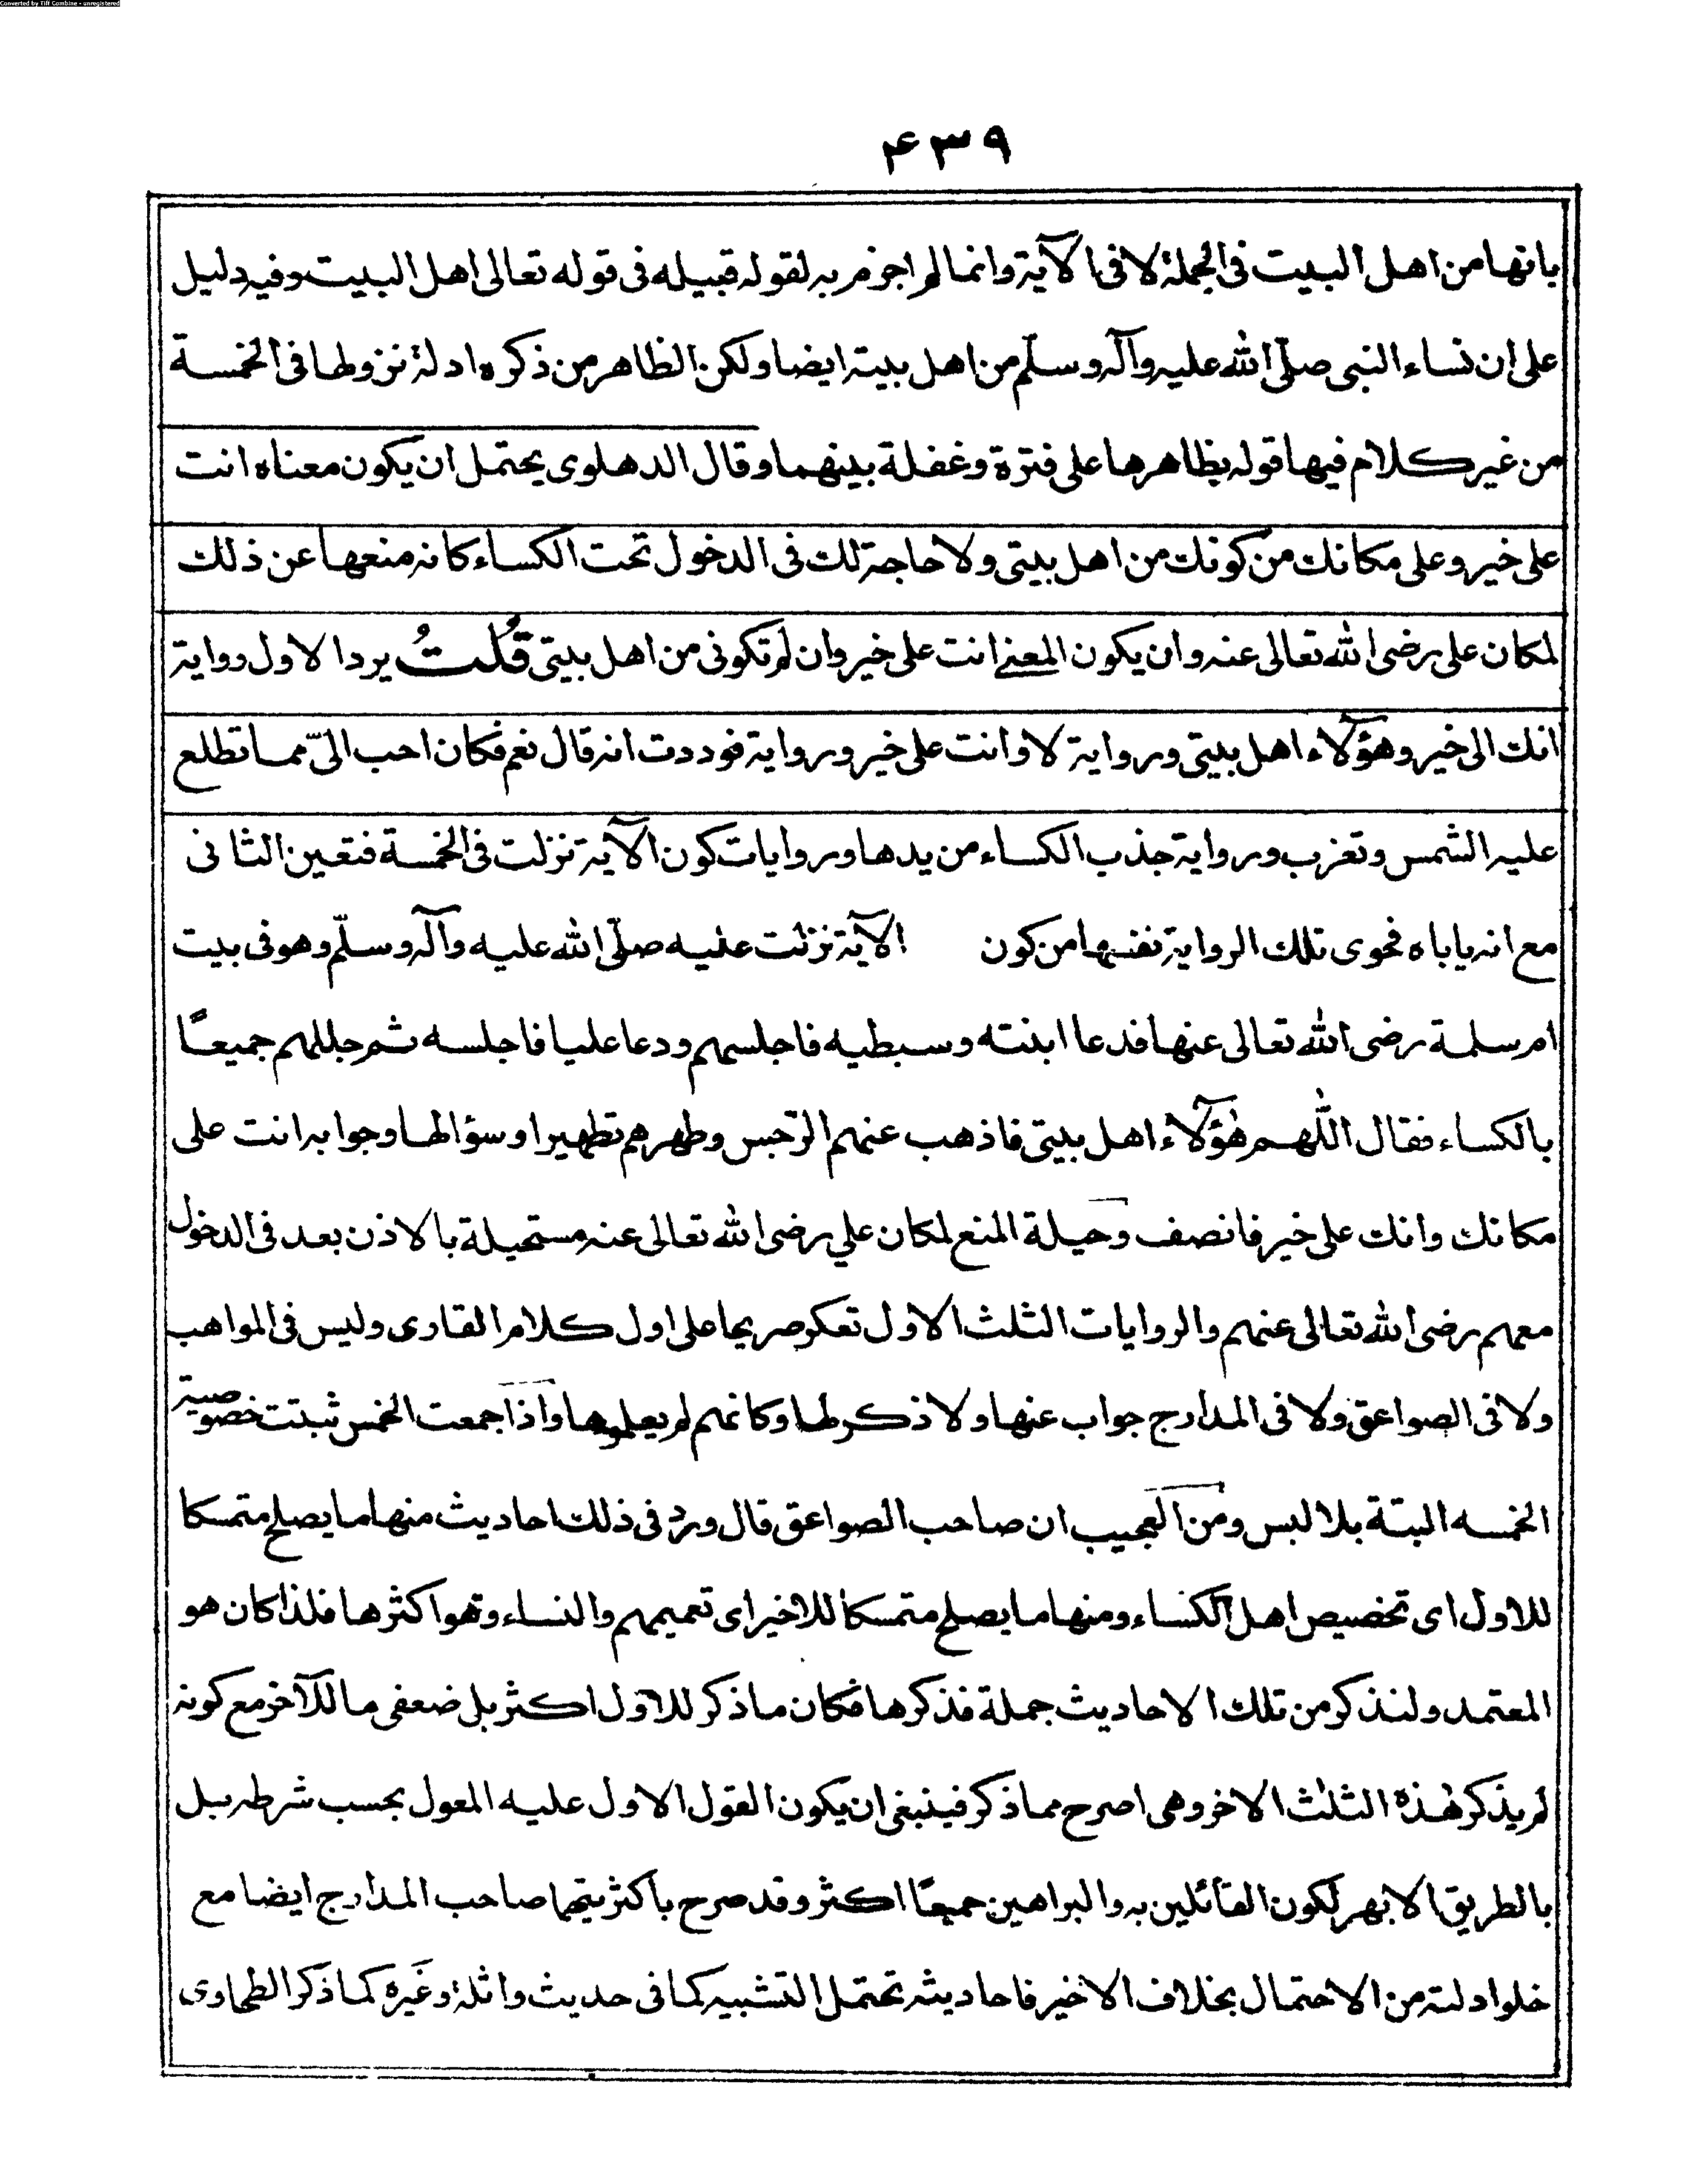 Converted by Tiff Combine - unregistered
۴۳۹
بانها من اهل البيت فى الجملة لا فى الآية وانما لم اجزم به لقوله قبيله فى قوله تعالى اهل البيت وفيه دليل
على ان نساء النبى صلّى الله عليه وآله وسلّم من اهل بيته ايضا ولكن الظاهر من ذكره ادلة نزولها فى الخمسة
من غير كلام فيها قوله بظاهرها على فترة وغفلة بينهما وقال الدهلوى يحتمل ان يكون معناه انت
على خير وعلى مكانك من كونك من اهل بيتى ولا حاجة لك فى الدخول تحت الكساء كانه منعها عن ذلك
لمكان على رضى الله تعالى عنه وان يكون المعنے انت على خير وان لم تكونى من اهل بيتى قُلتُ يرد الاول رواية
انك الى خير وهؤلآء اهل بيتى ورواية لا وانت على خير ورواية فوددت انه قال نعم فكان احب الىّ مما تطلع
عليه الشمس وتغرب ورواية جذب الكساء من يدها وروايات كون الآية نزلت فى الخمسة فتعين الثانى
مع انه ياباه فحوى تلك الرواية نفسها من كون الآية نزلت عليه صلّى الله عليه وآله وسلّم وهو فى بيت
ام سلمة رضى الله تعالى عنها فدعا ابنته وسبطيه فاجلسهم ودعا عليا فاجلسه ثم جللهم جميعًا
بالكساء فقال اللّهم هٰؤلآء اهل بيتى فاذهب عنهم الرّجس وطهرهم تطهيرا وسؤالها وجوابه انت على
مكانك وانك على خير فانصف وحيلة المنع لمكان علي رضى الله تعالى عنه مستحيلة بالاذن بعد فى الدخول
معهم رضى الله تعالى عنهم والروايات الثلث الاول تعكر صريحا على اول كلام القارى وليس فى المواهب
ولا فى الصواعق ولا فى المدارج جواب عنها ولا ذكر لها وكانهم لم يعلموها واذا جمعت الخمس ثبتت خصوصية
الخمسه البتة بلا لبس ومن العجيب ان صاحب الصواعق قال ورد فى ذلك احاديث منها ما يصلح متمسكا
للاول اى تخصيص اهل الكساء ومنها ما يصلح متمسكا للاخير اى تعميمهم والنساء وهو اكثرها فلذا كان هو
المعتمد ولنذكر من تلك الاحاديث جملة فذكرها فكان ما ذكر للاول اكثر بل ضعفى ما للآخر مع كونه
لم يذكر هٰذه الثلٰث الاخر وهى اصرح مما ذكر فينبغى ان يكون القول الاول عليه المعول بحسب شرطه بل
بالطريق الابهر لكون القآئلين به والبراهين جميعًا اكثر وقد صرح باكثريتهما صاحب المدارج ايضا مع
خلو ادلته من الاحتمال بخلاف الاخير فاحاديثه تحتمل التشبيه كما فى حديث واثلة وغيره كما ذكر الطحاوى